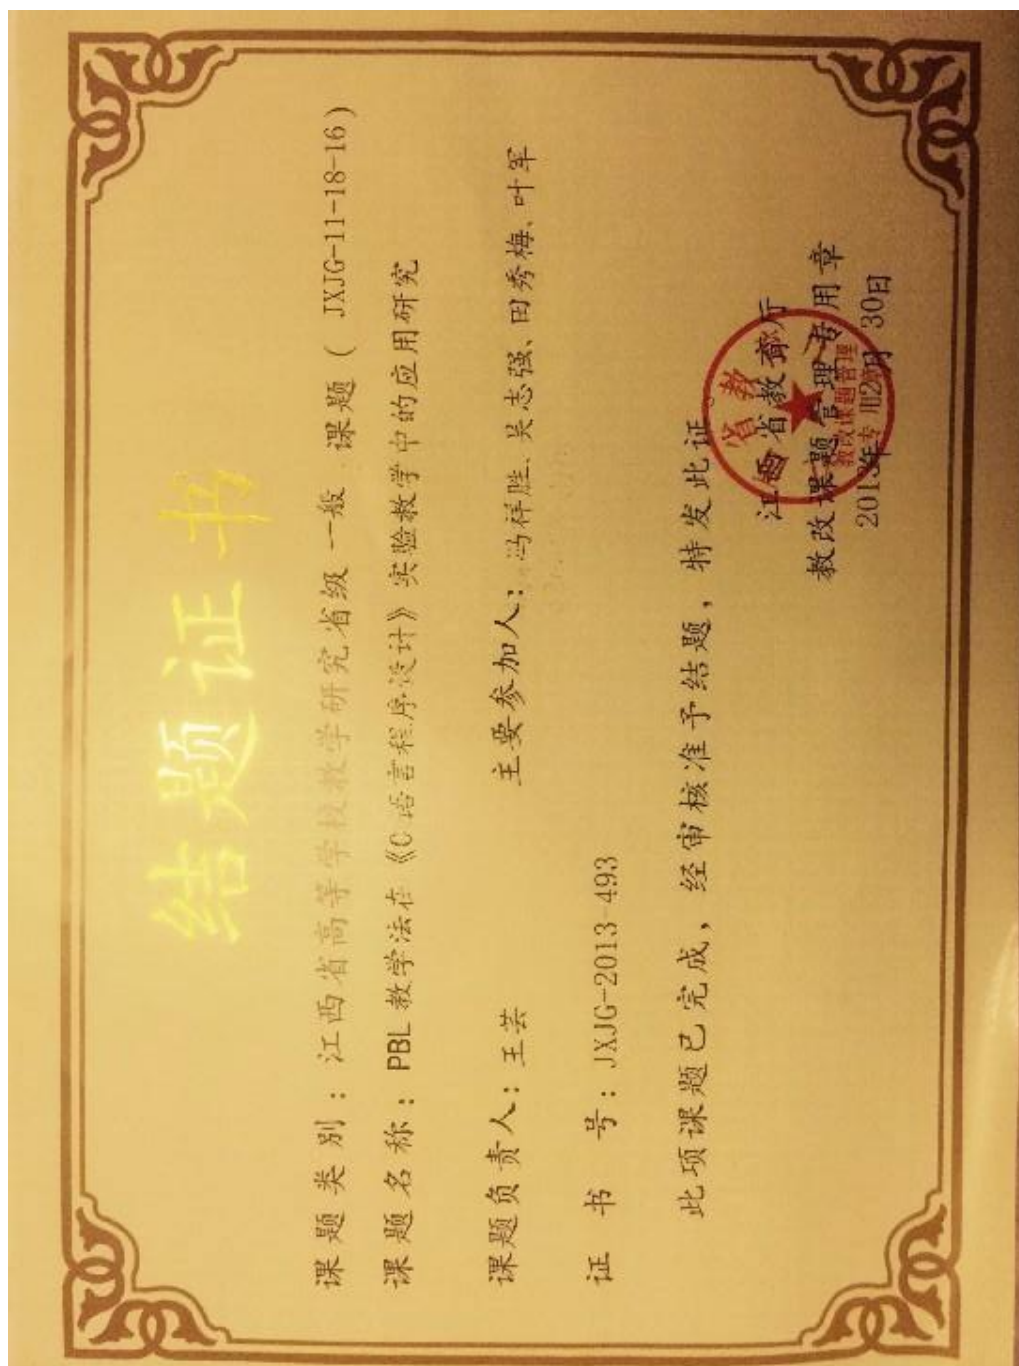 结题证书
课题类别：江西省高等学校教学研究省级一般 课题（ JXJG-11-18-16）
课题名称：PBL 教学法在《C 语言程序设计》实验教学中的应用研究
课题负责人：王芸 主要参加人：冯祥胜、吴志强、田秀梅、叶军
证 书 号：JXJG-2013-493
此项课题已完成，经审核准予结题，特发此证。
江西省教育厅
教改课题管理专用章
2013年12月30日